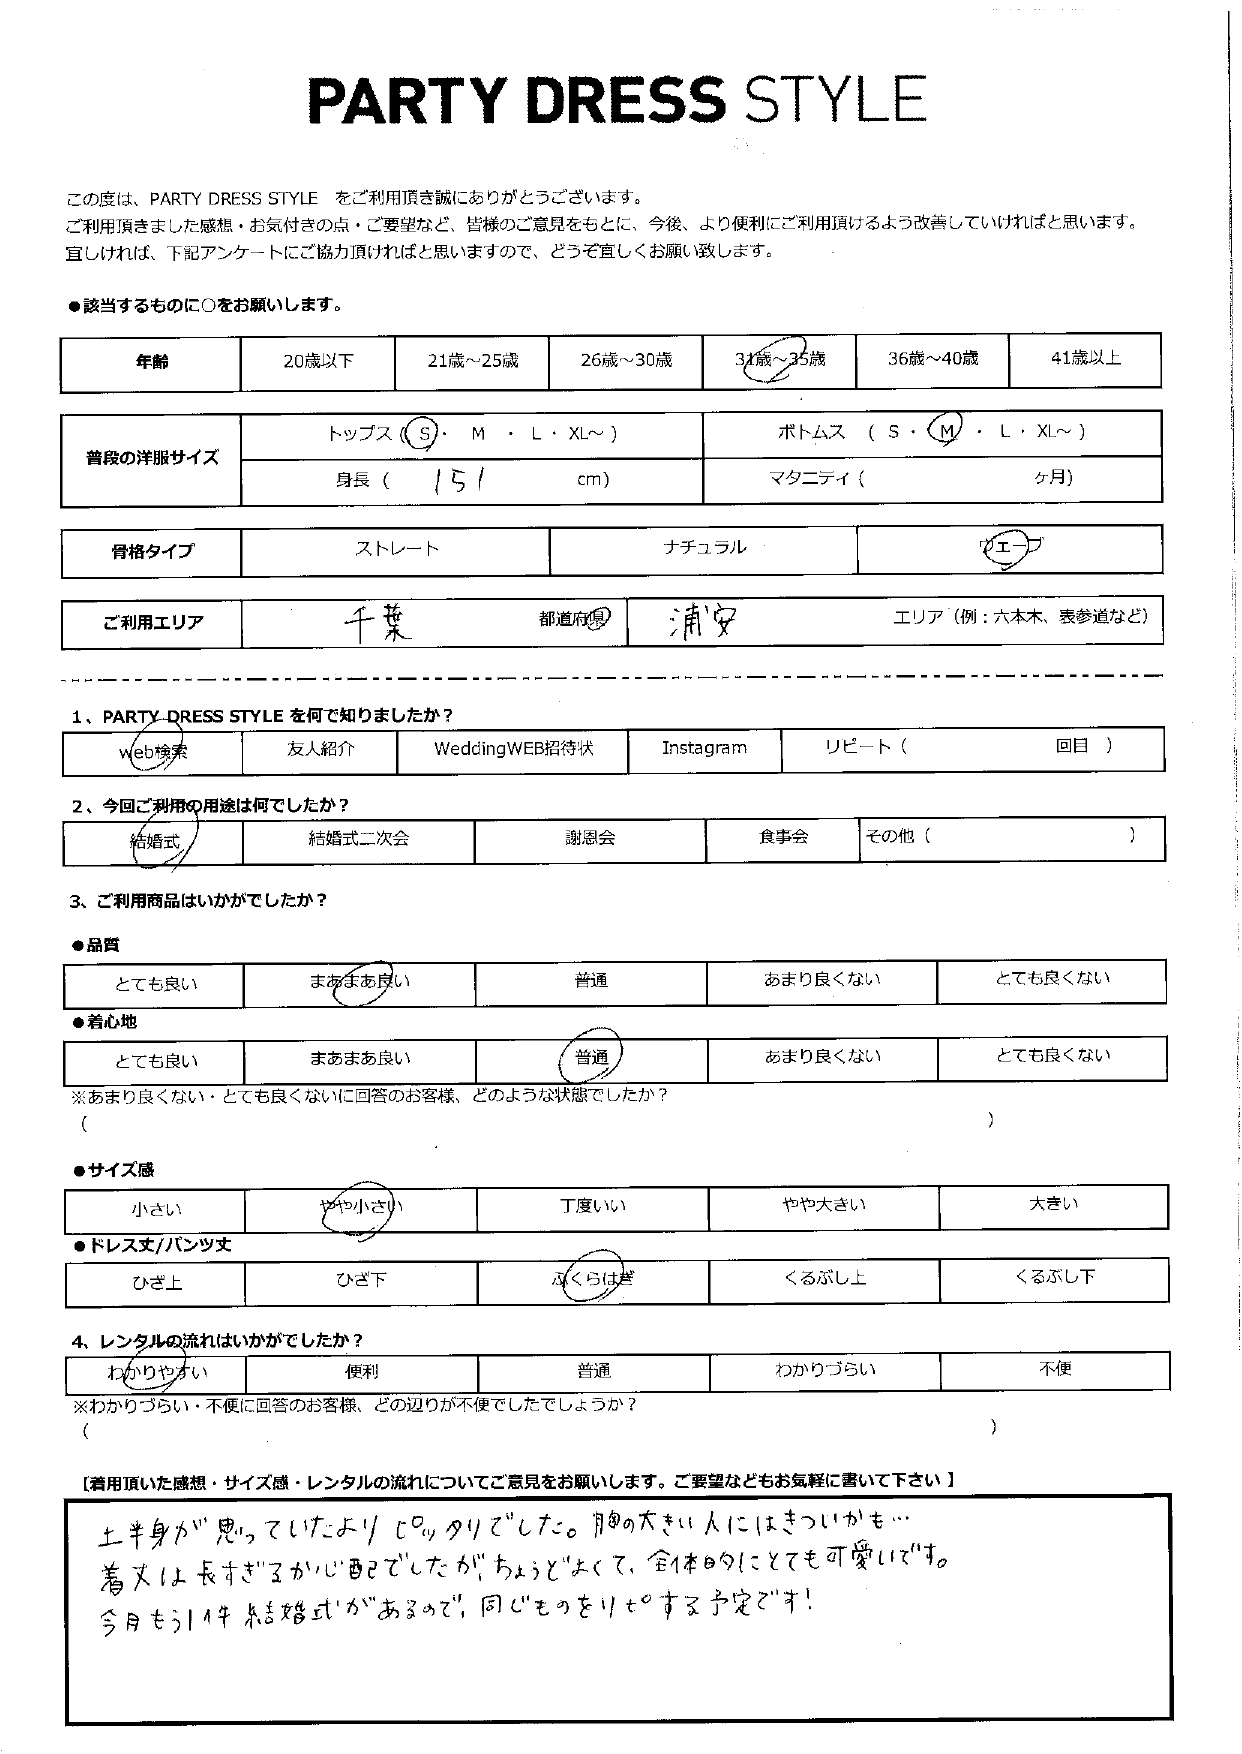 PARTY DRESS STYLE
この度は、PARTY DRESS STYLE をご利用頂き誠にありがとうございます。
ご利用頂きました感想・お気付きの点・ご要望など、皆様のご意見をもとに、今後、より便利にご利用頂けるよう改善していければと思います。
宜しければ、下記アンケートにご協力頂ければと思いますので、どうぞ宜しくお願い致します。
●該当するものに○をお願いします。
年齢 20歳以下 21歳～25歳 26歳～30歳 31歳～35歳 36歳～40歳 41歳以上
普段の洋服サイズ トップス ( S ・ M ・ L ・ XL～ ) ボトムス ( S ・ M ・ L ・ XL～ )
身長 ( 151 cm) マタニティ ( ヶ月)
骨格タイプ ストレート ナチュラル ウェーブ
ご利用エリア 千葉 都道府県 浦安 エリア（例：六本木、表参道など）
1、PARTY DRESS STYLE を何で知りましたか？
web検索 友人紹介 WeddingWEB招待状 Instagram リピート ( 回目 )
2、今回ご利用の用途は何でしたか？
結婚式 結婚式二次会 謝恩会 食事会 その他 ( )
3、ご利用商品はいかがでしたか？
●品質
とても良い まあまあ良い 普通 あまり良くない とても良くない
●着心地
とても良い まあまあ良い 普通 あまり良くない とても良くない
※あまり良くない・とても良くないに回答のお客様、どのような状態でしたか？
( )
●サイズ感
小さい やや小さい 丁度いい やや大きい 大きい
●ドレス丈/パンツ丈
ひざ上 ひざ下 ふくらはぎ くるぶし上 くるぶし下
4、レンタルの流れはいかがでしたか？
わかりやすい 便利 普通 わかりづらい 不便
※わかりづらい・不便に回答のお客様、どの辺りが不便でしたでしょうか？
( )
【着用頂いた感想・サイズ感・レンタルの流れについてご意見をお願いします。ご要望などもお気軽に書いて下さい】
上半身が思っていたよりピッタリでした。胸の大きい人にはきついかも…
着丈は長すぎるか心配でしたが、ちょうどよくて、全体的にとても可愛いです。
今月もう1件結婚式があるので、同じものをリピする予定です！